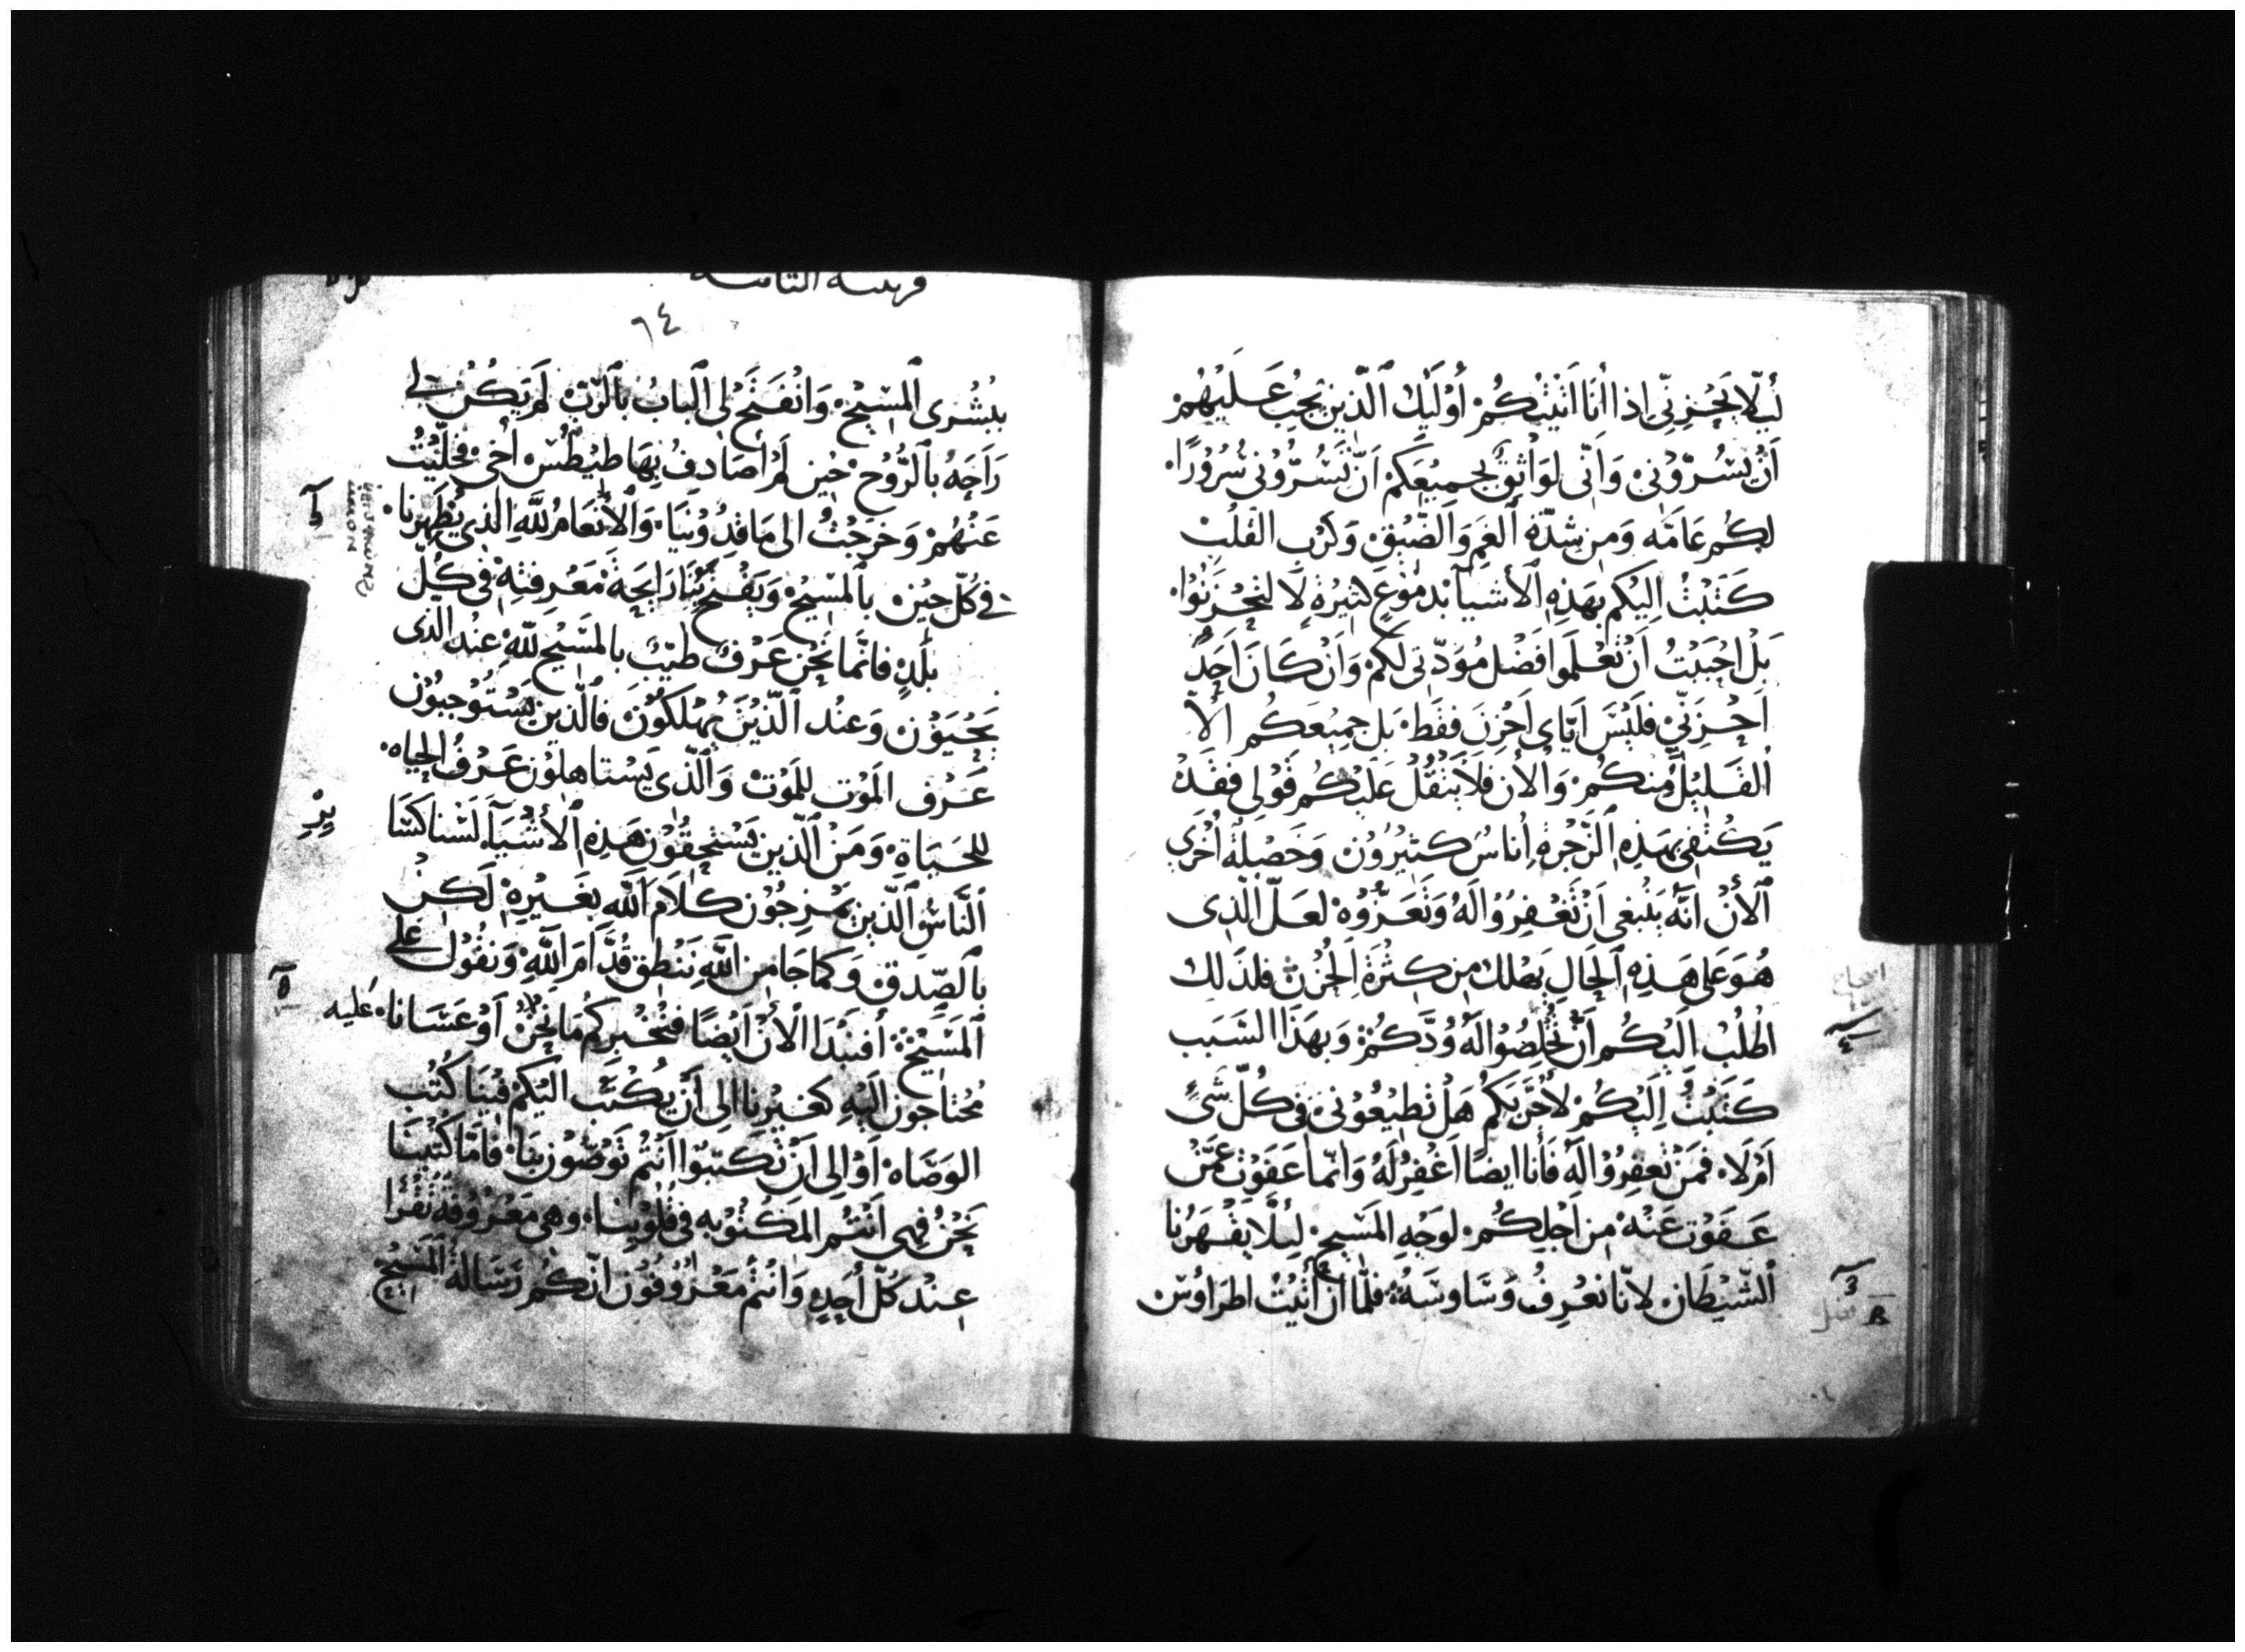 لِيَلَّا تُحْزِنِّي اِذا اُنَا اَتَيْتُكُمْ أُوْلَيِكَ ٱلَّذِين يَجِبُ عَلَيْهُمْ
اَنْ يَسُرّوْنِي وَاَنّى لوَاثِقٌ بجمِيْعِكمْ اَنّ تَسُرُّوْني سُرُوْرًا
لكُم عَامّه وَمِن شِدّة ٱلغَمِ وَالضّيْقِ وَكَرْبِ القَلْبْ
كَتَبْتُ اِليْكُم بهَذِهِ ٱلأشيَآ بدمُوْعٍ كثيْرةٍ لَا لتَحْزَنُوا
بَلْ احْبَبْتُ اَنْ تَعْلَموا فَضْل مُوَدّتى لكمْ وَاَنْ كَانَ اَحَدٌ
اَحْزَنَنِّيْ فلَيْسَ ايّاى اَحْزنَ فقَط بَل جمِيْعَكُم الّا
القَلِيْلُ مِنكُمْ وَالأن فَلَا يَثْقُلْ عَلَيْكُم قَوْلِي فقَدْ
يَكْتفِي بهَذِهِ ٱلزّجْرةِ اُناسٌ كثيْرُوْن وَخَصْلةٌ أُخْرَى
ٱلأنْ انّه يَنْبغى اَنْ تَغْفِرُوْا لَهُ وَتُعَزُّوْه لعَلّ الّذِى
هُوَ عَلى هَذِهِ اَلْحَال يَهْلك مِن كثْرَة الحُزْنِ فلذَلك
اطْلُبْ اِلَيْكُم اَنْ تُخْلِصُوْا لَهُ وُدَّكُمْ وَبهَذَا السَّبَب
كَتَبْتُ اِلَيْكُمْ لأُجَرّبَكُمْ هَلْ تطيْعُوْني فى كُلّ شَىٍ
اَمْ لَا فمَنْ تغفِرُوْا لَهُ فَأنا ايضًا اَغْفِرُ لَهُ وَانّما عَفَوْتُ عمّنْ
عَفَوْت عَنْهُ مِن اَجْلِكُمْ لوَجْهِ المَسِيح لِيلَّا يَقْهَرُنا
ٱلشّيْطَانْ لانّا نعْرِفُ وَسَاوسَهُ فلمّا ان اَتَيْتُ اطرَاوُسْ
قرنتيه الثانيه
٦٤
ببُشْرى ٱلمسِيْحْ وَانْفَتَحْ لِى ٱلْبابُ بٱلرّبّ لَمْ يَكُنْ لى
رَاحَةُ بٱلرُّوْحْ حِيْن لمْ أُصَادِفْ بِهَا طيْطُسْ أخى فخلّيْتُ
عَنْهُمْ وَخرَجْتُ الى مَاقدُوْنيَا وَٱلأنْعَامُ للّهِ الذى يُظْهِرُنا
فى كُلّ حِيْن بالمسِيْحْ وَيَفْتحُ بنَا رَايحَة مَعْرِفتِهْ فى كُلّ
بلَدٍ فانّما نَحْن عَرْفٌ طيّبٌ بالمَسْيحْ للّهِ عِنْد الذى
يَحْيَوْن وَعنْد ٱلّذيْنَ يَهْلكُوْن فالّذين يَسْتَوْجبُوْن
عَرْف المَوْت للمَوْتْ وَالّذى يَسْتاهلوْن عَرْفُ الحياه
للحَيَاةِ وَمَنْ الّذين يَسْتحِقّوْن هَذِه ٱلأشْيَآ لَسْنا كسَا
ٱلنّاسِ ٱلّذِين يَمْزِجُوْن كلَام اَللّه بغَيْرِهْ لَكِنْ
بالصّدق وَكمَا جَا مِن اللّهِ نَنْطِق قُدَّامَ اَللّهِ وَنقُوْل على
اَلمَسِيْحْ أفنبْدَا الأنْ اَيْضًا فنُخْبركُمْ مَا نَحْنُ اَوْ عَسَانا
عليه
مُحْتاجون اليْهِ كغيْرِنا الى اَنْ يُكْتَبْ اليْكمْ فيْنَا كُتُب
الوَصَاه اَوْ الى اَنْ تكتبُوا اَنْتُمْ توَصُّوْن بنَا فأمّا كُتُبنَا
نَحْنُ فهى اَنْتُم المَكْتُوْبه فى قُلُوْبنَا وَهى مَعْرُوْفَه تُقْرَا
عِنْد كُلّ أحَدٍ وَاَنْتمْ مَعْرُوْفُوْن انّكُم رَسَالةُ المَسِيْحْ